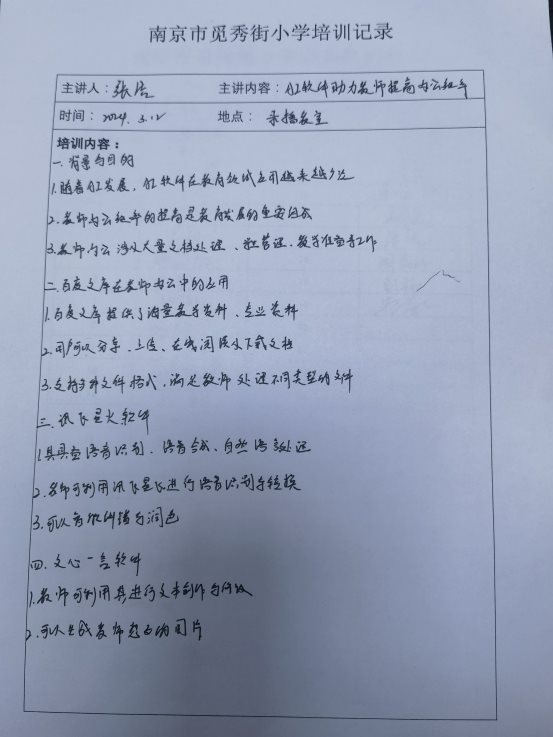 南京市觅秀街小学培训记录
主讲人：张浩 主讲内容：AI软件助力教师提高办公效率
时间：2024.3.12 地点：录播教室
培训内容：
一.背景与目的
1.随着AI发展，AI软件在教育领域应用越来越广泛
2.教师办公效率的提高是教育发展的重要任务
3.教师办公涉及大量文档处理、教学准备等工作
二.百度文库在教师办公中的应用
1.百度文库提供了海量教学资料、专业资料
2.用户可以分享、上传、在线阅读及下载文档
3.支持多种文件格式，满足教师处理不同类型的文件
三.讯飞星火软件
1.具备语音识别、语音合成、自然语言处理
2.老师可利用讯飞星火进行语音识别与转换
3.可以智能纠错与润色
四.文心一言软件
1.教师可利用其进行文本创作与修改
2.可以生成教师想要的图片